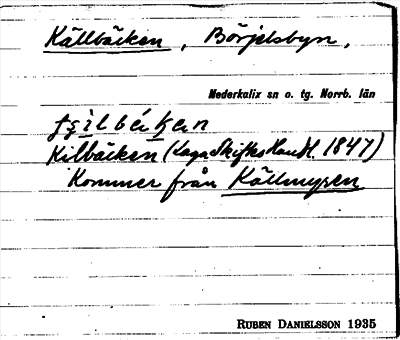 Källbäcken, Börjelsbyn,
Nederkalix sn o. tg. Norrb. län
Kilbäcken (Laga skifts Handl. 1847)
Kommer från Källmyren
RUBEN DANIELSSON 1935